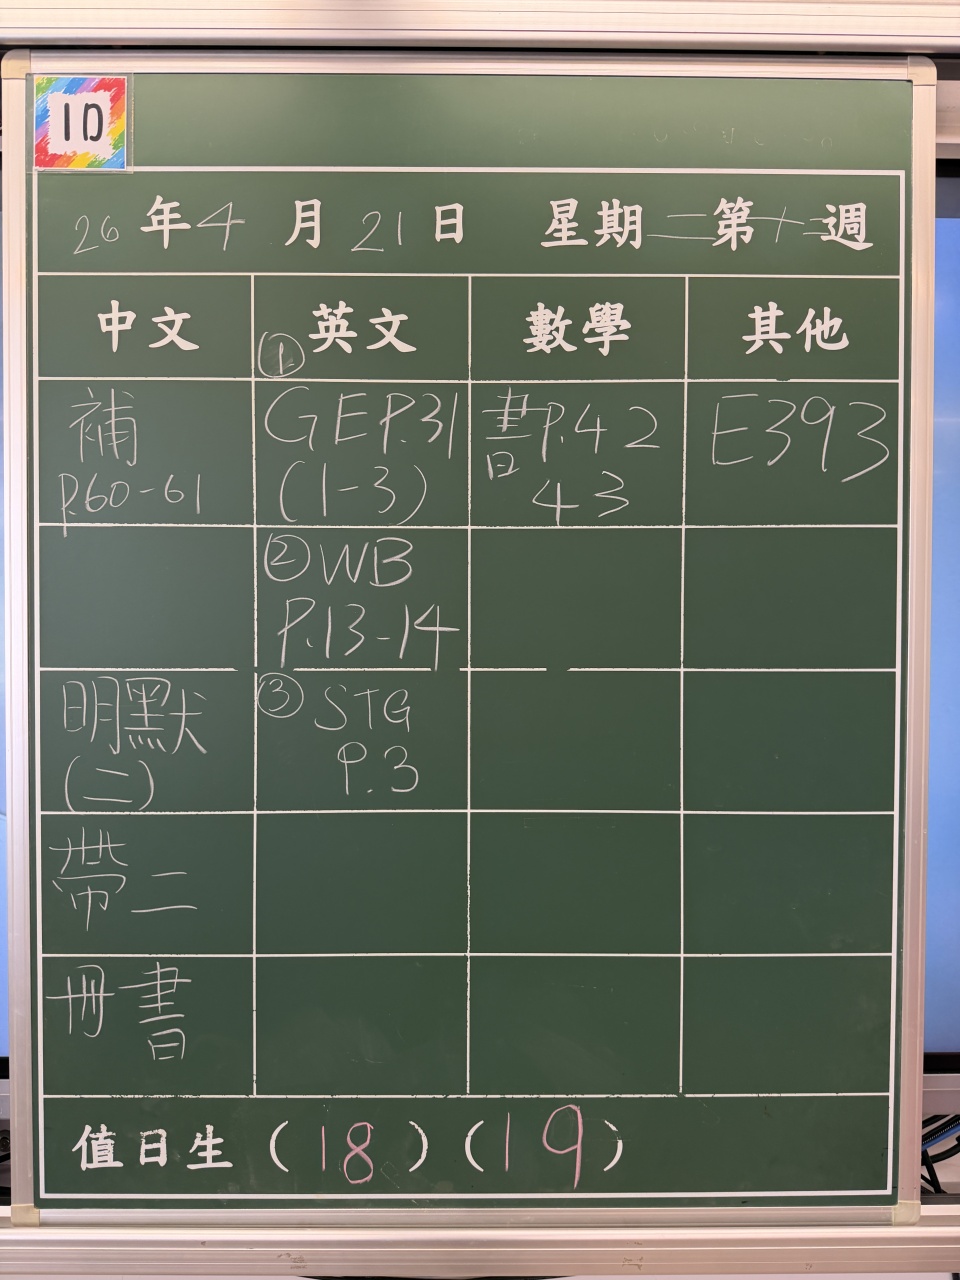 1D
26年4月21日 星期二第十二週
中文 ①英文 數學 其他
補
P.60-61
GE P.31
(1-3)
書P.42
43
E393
②WB
P.13-14
明默
(二)
③STG
P.3
帶二
冊書
值日生(18)(19)